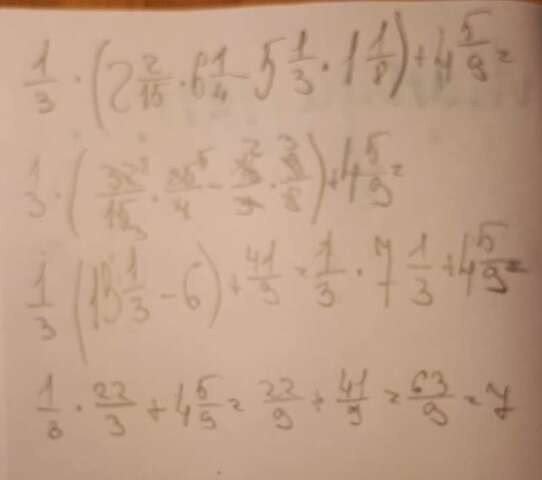 1/3 · (2 2/15 · 6 1/4 - 5 1/3 · 1 1/8) + 4 5/9 =
1/3 · (32/15 · 25/4 - 16/3 · 9/8) + 4 5/9 =
1/3 (13 1/3 - 6) + 41/9 = 1/3 · 7 1/3 + 4 5/9 =
1/3 · 22/3 + 4 5/9 = 22/9 + 41/9 = 63/9 = 7